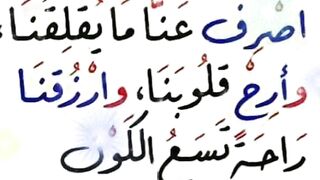 اصْرِف عَنَّا مَا يُقلِقَنَا،
وأرِحْ قلُوبَنَا، وارْزُقنَا
رَاحَةً تَسَعُ الكَوْن